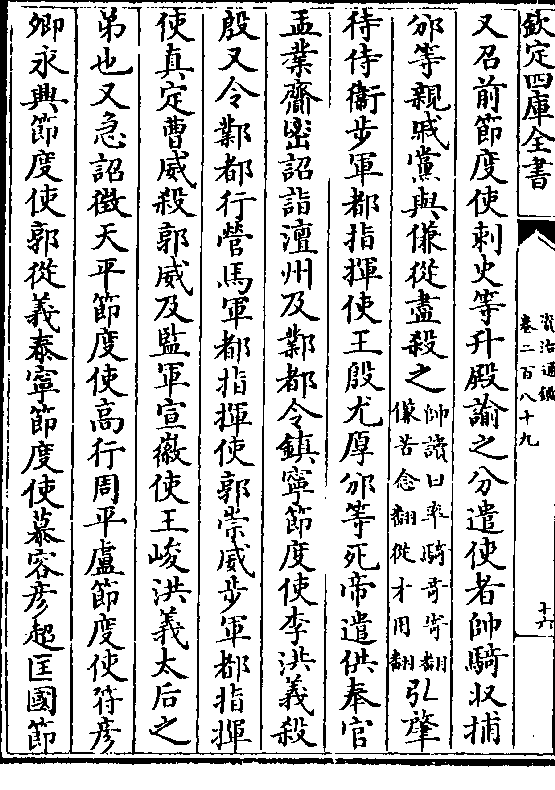 欽定四庫全書
資治通鑑
卷二百八十九
十六
又召前節度使刺史等升殿諭之分遣使者帥騎収捕
邠等親戚黨與傔從盡殺之帥讀曰率騎奇寄翻
傔苦念翻從才用翻弘肇
待侍衛步軍都指揮使王殷尤厚邠等死帝遣供奉官
孟業齎密詔詣澶州及鄴都令鎮寧節度使李洪義殺
殷又令鄴都行營馬軍都指揮使郭崇威步軍都指揮
使真定曹威殺郭威及監軍宣徽使王峻洪義太后之
弟也又急詔徵天平節度使高行周平盧節度使符彦
卿永興節度使郭從義泰寧節度使慕容彦超匡國節